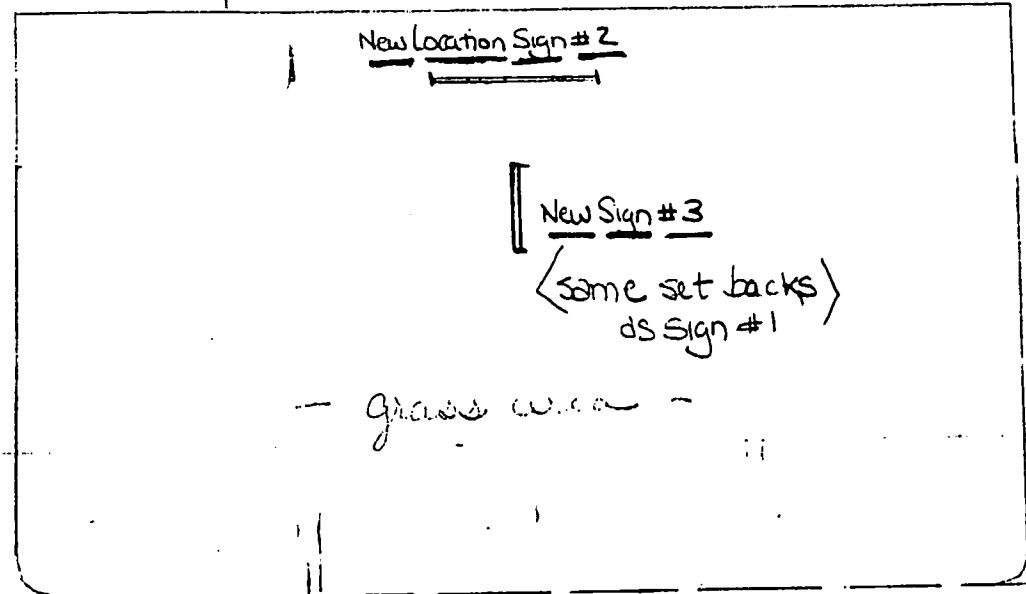 New Location Sign #2
New Sign #3
<same set backs>
as Sign #1
- grass area -